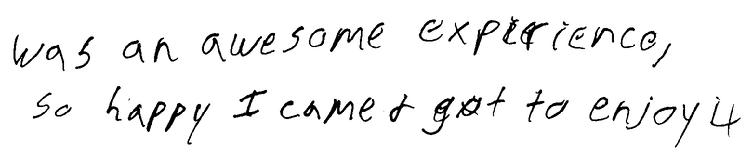 was an awesome experience,
so happy I came & got to enjoy it